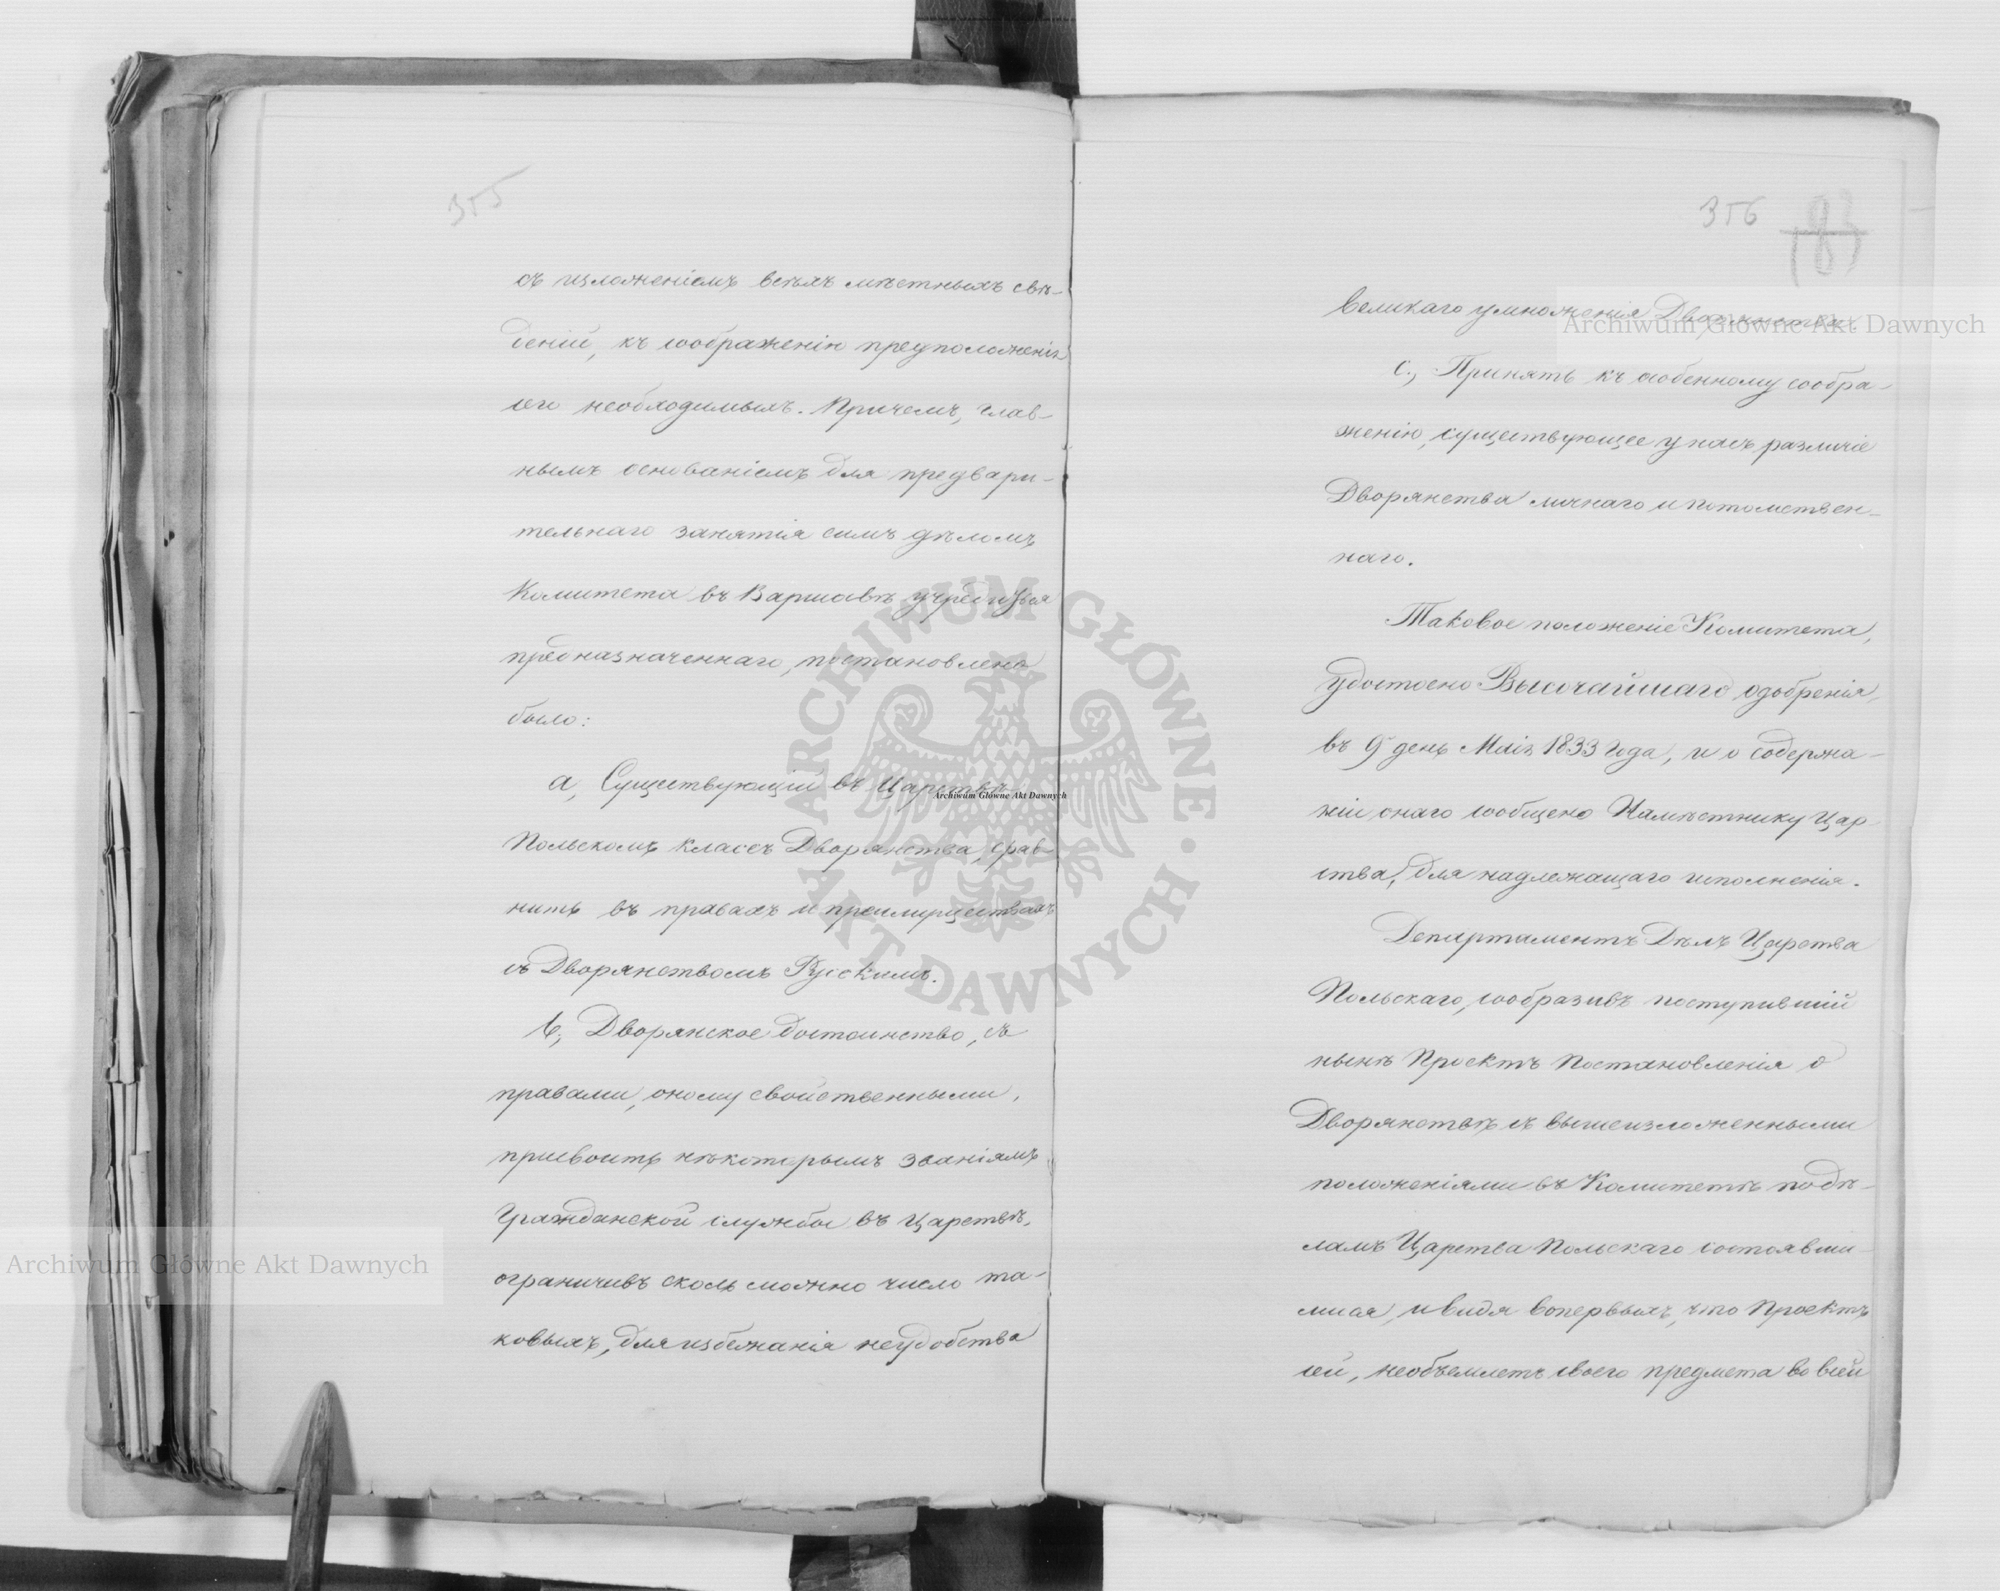 355
съ изложеніемъ всѣхъ мѣстныхъ свѣ-
деній, къ соображенію предположенія
сего необходимыхъ. Причемъ, глав-
нымъ основаніемъ для предвари-
тельнаго занятія симъ дѣломъ
Комитета въ Варшавѣ
предназначеннаго, постановлено
было:
а, Существующій въ Царствѣ
Польскомъ классъ Дворянства, срав-
нить въ правахъ и преимуществахъ
съ Дворянствомъ Русскимъ.
b, Дворянское достоинство, съ
правами, оному свойственными,
присвоить нѣкоторымъ званіямъ
Гражданской службы въ Царствѣ,
ограничивъ сколь можно число та-
ковыхъ, для избежанія неудобства
356 183
великаго умноженія Дворянства.
с., Принять къ особенному сообра-
женію, существующее у насъ различіе
Дворянства личнаго и потомствен-
наго.
Таковое положеніе Комитета,
удостоено Высочайшаго одобренія,
въ 9 день Маія 1833 года, и о содержа-
ніи онаго сообщено Намѣстнику Цар-
ства, для надлежащаго исполненія.
Департаментъ Дѣлъ Царства
Польскаго, сообразивъ поступившій
нынѣ Проектъ Постановленія о
Дворянствѣ съ вышеизложенными
положеніями въ Комитетѣ по дѣ-
ламъ Царства Польскаго состоявши-
мися, и видя вопервыхъ, что Проектъ
сей, необъемлетъ своего предмета во всей
Archiwum Główne Akt Dawnych
Archiwum Główne Akt Dawnych
Archiwum Główne Akt Dawnych
ARCHIWUM GŁÓWNE AKT DAWNYCH